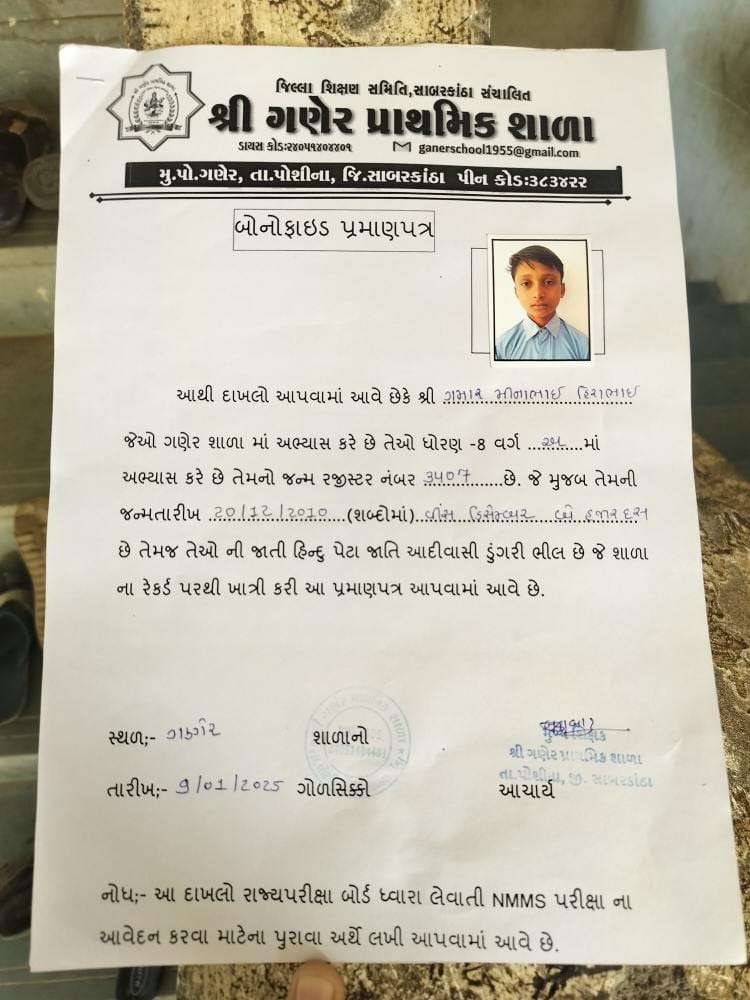 જિલ્લા શિક્ષણ સમિતિ,સાબરકાંઠા સંચાલિત
શ્રી ગણેર પ્રાથમિક શાળા
ડાયસ કોડ:૨૪૦૫૧૪૦૪૪૦૧ ganerschool1955@gmail.com
મુ.પો.ગણેર, તા.પોશીના, જિ.સાબરકાંઠા પીન કોડ:૩૮૩૪૨૨
બોનોફાઇડ પ્રમાણપત્ર
આથી દાખલો આપવામાં આવે છેકે શ્રી ગમાર મીનાભાઈ હિરાભાઈ
જેઓ ગણેર શાળા માં અભ્યાસ કરે છે તેઓ ધોરણ -8 વર્ગ ......માં
અભ્યાસ કરે છે તેમનો જન્મ રજીસ્ટર નંબર 3407 છે. જે મુજબ તેમની
જન્મતારીખ 20/12/2010 (શબ્દોમાં) વીસ ડિસેમ્બર બે હજાર દસ
છે તેમજ તેઓ ની જાતી હિન્દુ પેટા જાતિ આદીવાસી ડુંગરી ભીલ છે જે શાળા
ના રેકર્ડ પરથી ખાત્રી કરી આ પ્રમાણપત્ર આપવામાં આવે છે.
સ્થળ;- ગણેર શાળાનો
મુખ્ય શિક્ષક
શ્રી ગણેર પ્રાથમિક શાળા
તા.પોશીના, જી. સાબરકાંઠા
તારીખ;- 9/01/2025 ગોળસિક્કો આચાર્ય
નોધ;- આ દાખલો રાજ્યપરીક્ષા બોર્ડ ધ્વારા લેવાતી NMMS પરીક્ષા ના
આવેદન કરવા માટેના પુરાવા અર્થે લખી આપવામાં આવે છે.